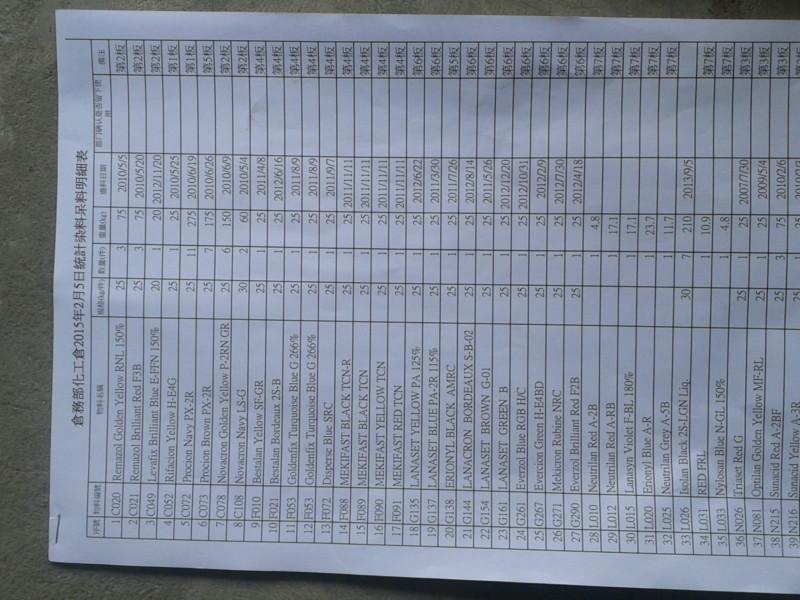 倉務部化工倉2015年2月5日統計染料呆料明細表
序號 物料編號 物料名稱 規格(kg/件) 數量(件) 重量(kg) 進料日期 部门确认是否留下使用 備注
1 C020 Remazol Golden Yellow RNL 150% 25 3 75 2010/5/5 第2板
2 C021 Remazol Brilliant Red F3B 25 3 75 2010/5/20 第2板
3 C049 Levafix Brilliant Blue E-FFN 150% 20 1 20 2012/11/20 第2板
4 C052 Rifacion Yellow H-E4G 25 1 25 2010/5/25 第1板
5 C072 Procion Navy PX-2R 25 11 275 2010/6/19 第1板
6 C073 Procion Brown PX-2R 25 7 175 2010/6/26 第5板
7 C078 Novacron Golden Yellow P-2RN GR 25 6 150 2010/6/9 第2板
8 C108 Novacron Navy LS-G 30 2 60 2010/5/4 第2板
9 F010 Bestalan Yellow SF-GR 25 1 25 2011/4/8 第4板
10 F021 Bestalan Bordeaux 2S-B 25 1 25 2012/6/16 第4板
11 F053 Goldenfix Turquoise Blue G 266% 25 1 25 2011/8/9 第4板
12 F053 Goldenfix Turquoise Blue G 266% 25 1 25 2011/8/9 第4板
13 F072 Disperse Blue SRC 25 1 25 2011/9/7 第4板
14 F088 MEKIFAST BLACK TCN-R 25 1 25 2011/11/11 第4板
15 F089 MEKIFAST BLACK TCN 25 1 25 2011/11/11 第4板
16 F090 MEKIFAST YELLOW TCN 25 1 25 2011/11/11 第4板
17 F091 MEKIFAST RED TCN 25 1 25 2011/11/11 第4板
18 G135 LANASET YELLOW PA 125% 25 1 25 2012/6/22 第6板
19 G137 LANASET BLUE PA-2R 115% 25 1 25 2011/3/30 第6板
20 G138 ERIONYL BLACK AMRC 25 1 25 2011/7/26 第5板
21 G144 LANACRON BORDEAUX S-B-02 25 1 25 2012/8/14 第6板
22 G154 LANASET BROWN G-01 25 1 25 2011/5/26 第6板
23 G161 LANASET GREEN B 25 1 25 2012/12/20 第6板
24 G261 Everzol Blue RGB H/C 25 1 25 2012/10/31 第6板
25 G267 Evercion Green H-E4BD 25 1 25 2012/2/9 第6板
26 G271 Mekicron Rubine NRC 25 1 25 2012/7/30 第6板
27 G290 Everzol Brilliant Red F2B 25 1 25 2012/4/18 第6板
28 L010 Neutrilan Red A-2B 1 4.8 第7板
29 L012 Neutrilan Red A-RB 1 17.1 第7板
30 L015 Lanasyn Violet F-BL 180% 1 17.1 第7板
31 L020 Erionyl Blue A-R 1 23.7 第7板
32 L025 Neutrilan Grey A-5B 1 11.7 第7板
33 L026 Isolan Black 2S-LGN Liq. 30 7 210 2013/9/5
34 L031 RED FRL 1 10.9 第7板
35 L033 Nylosan Blue N-GL 150% 1 4.8 第7板
36 N026 Truset Red G 25 1 25 2007/7/30 第3板
37 N081 Optilan Golden Yellow MF-RL 25 1 25 2009/5/4 第3板
38 N215 Sunacid Red A-2BF 25 3 75 2010/2/6 第3板
39 N216 Sunacid Yellow A-3R